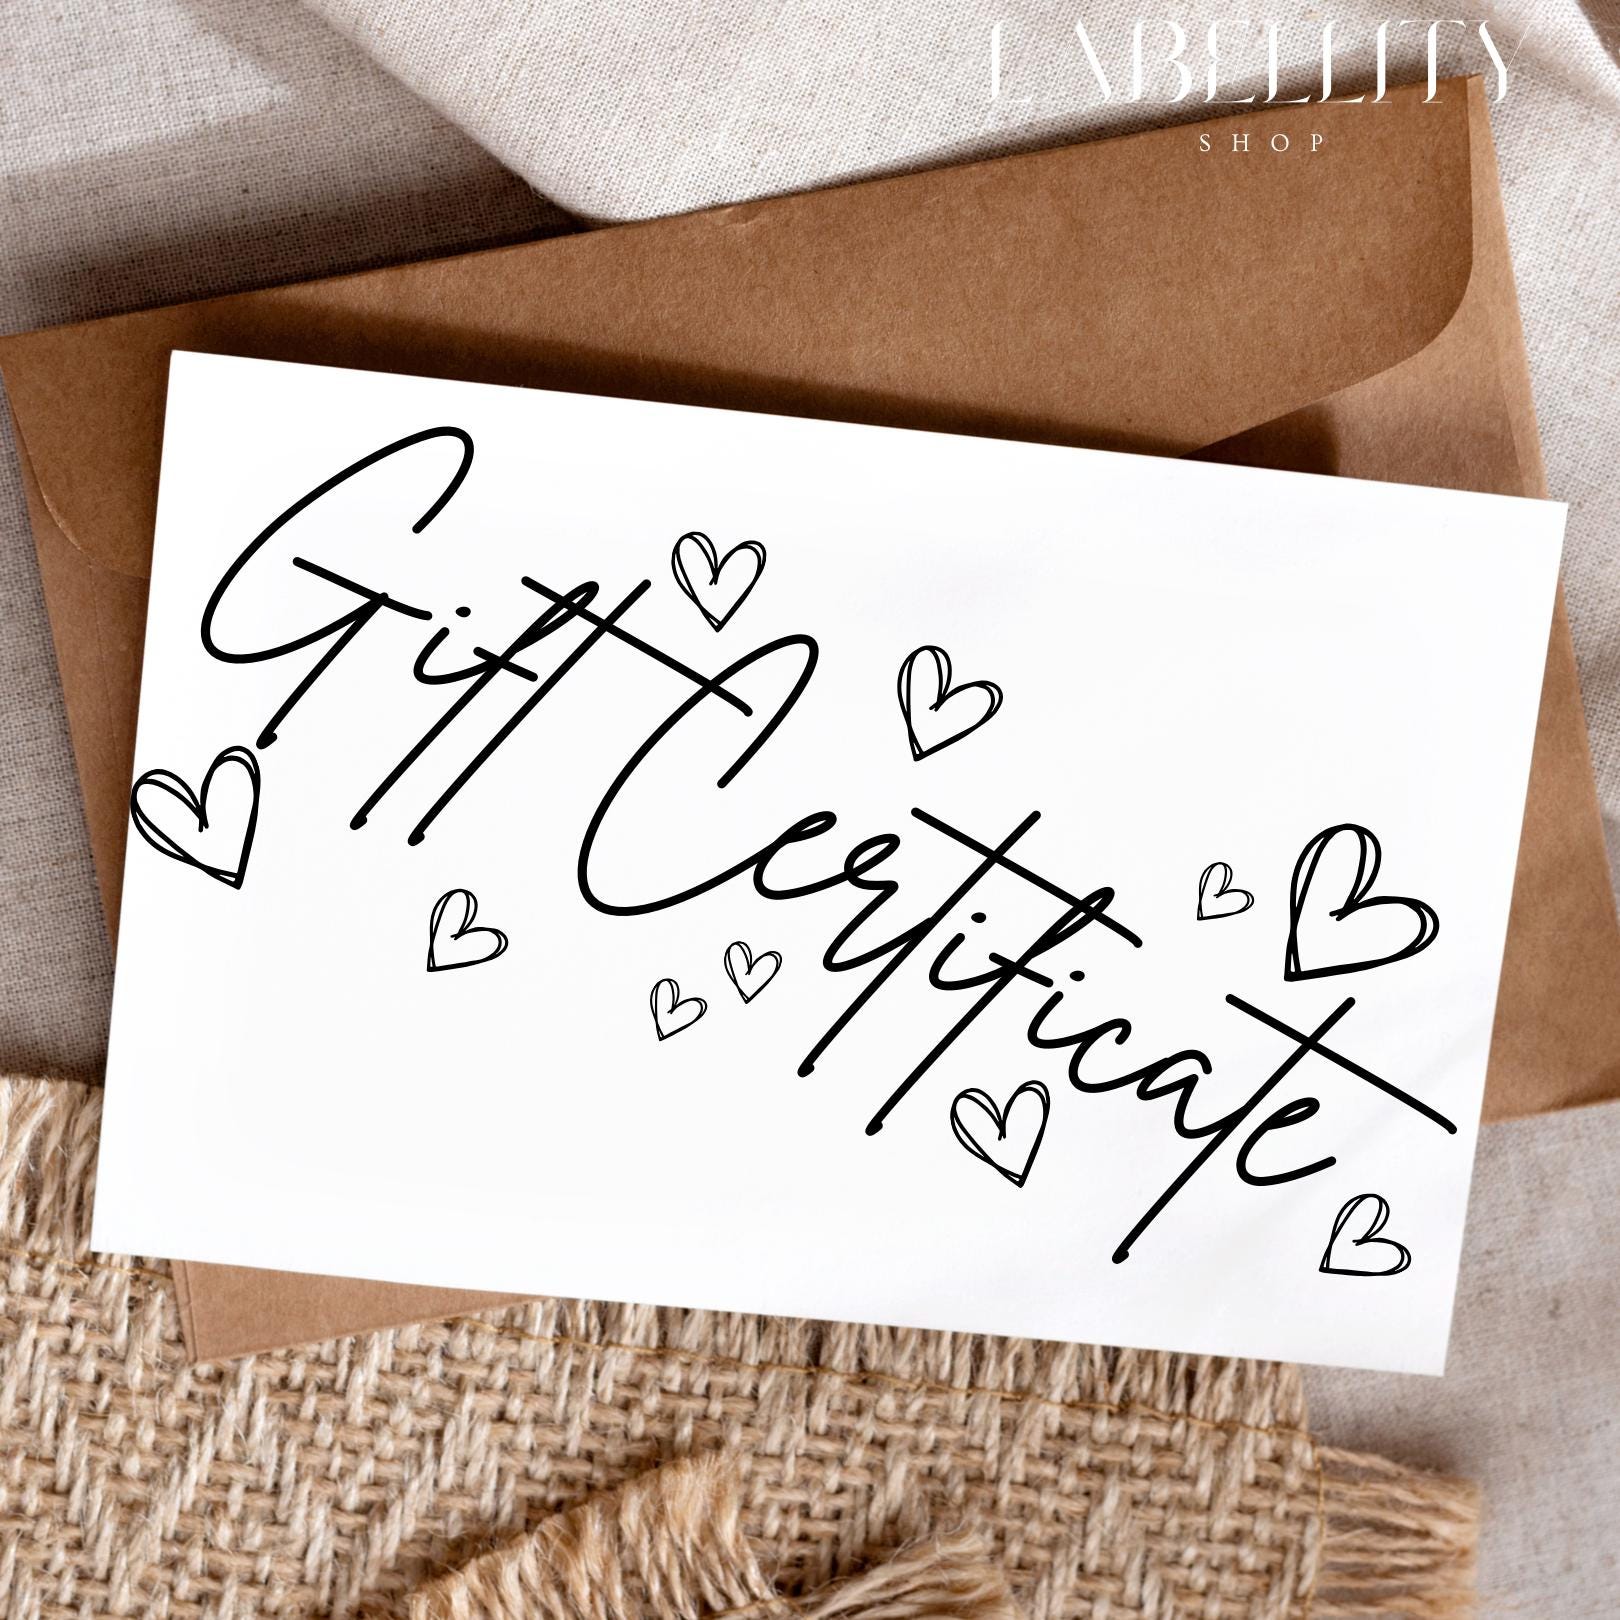 LABELLITY
SHOP
Gift Certificate